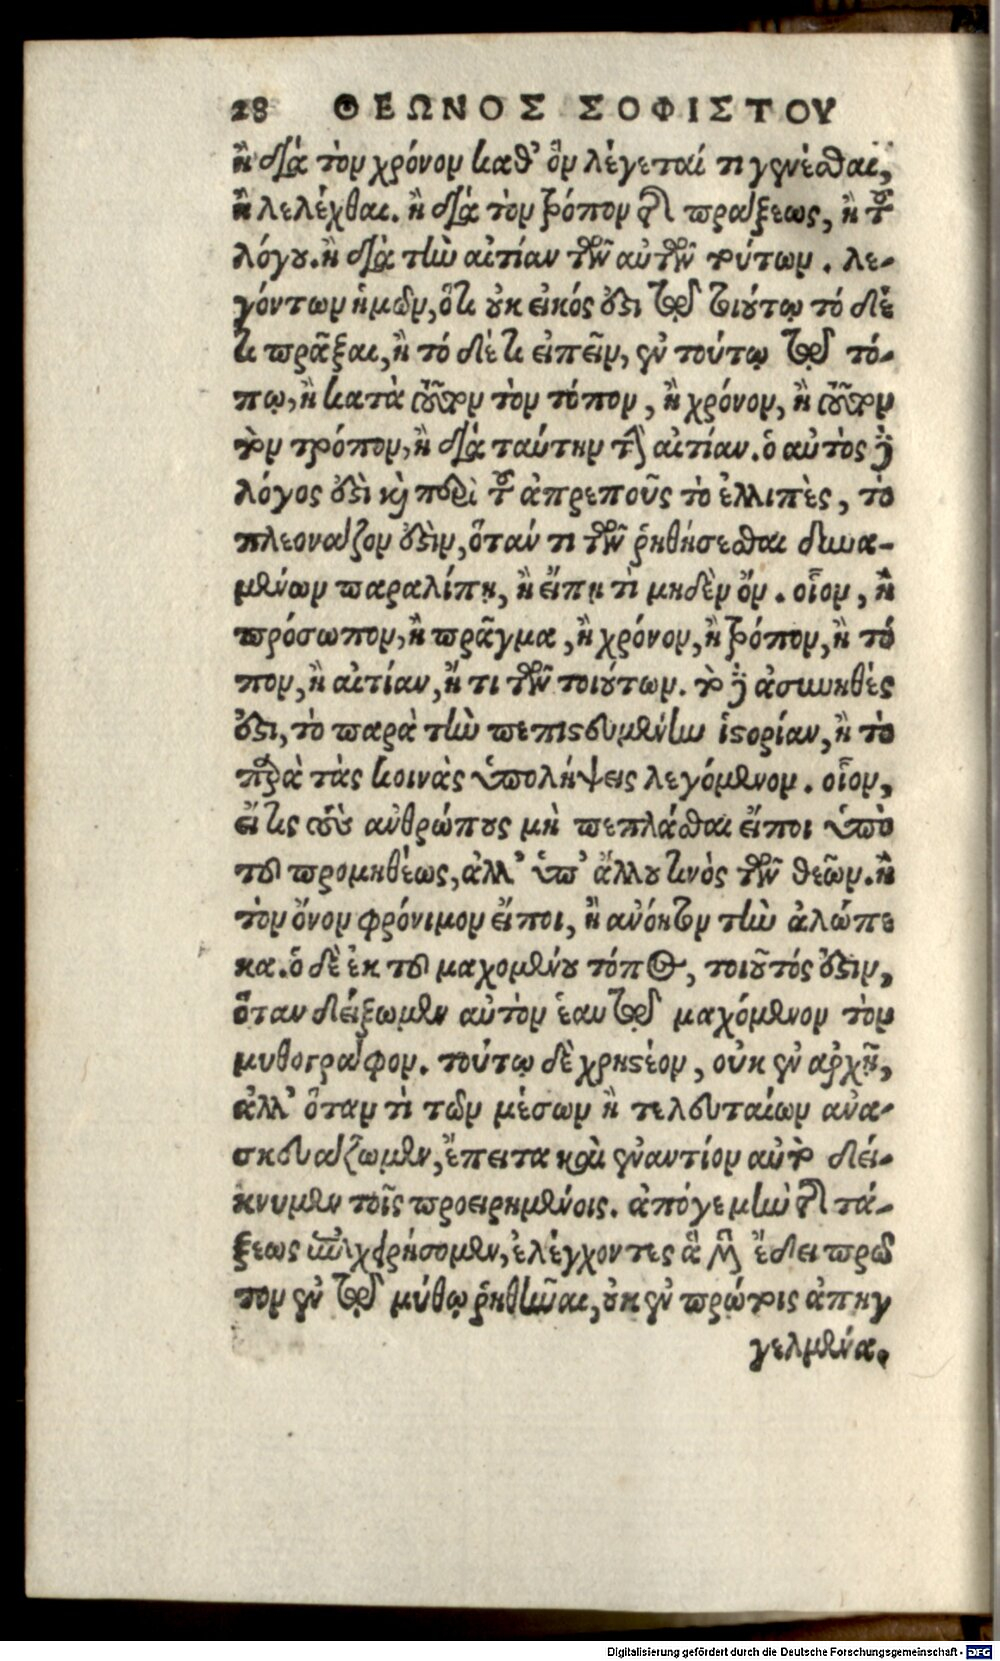 28 ΘΕΩΝΟΣ ΣΟΦΙΣΤΟΥ
ἢ διὰ τὸν χρόνον καθ' ὃν λέγεταί τι γενέσθαι,
ἢ λελέχθαι. ἢ διὰ τὸν τρόπον τῆς πράξεως, ἢ τοῦ
λόγου. ἢ διὰ τὴν αἰτίαν τῶν αὐτῶν τούτων. λε-
γόντων ἡμῶν, ὅτι οὐκ εἰκός ἐστι τῷ τοιούτῳ τό δέ
τι πρᾶξαι, ἢ τό δέ τι εἰπεῖν, ἐν τούτῳ τῷ τό-
πῳ, ἢ κατὰ τοῦτον τὸν τόπον, ἢ χρόνον, ἢ τοῦτον
τὸν τρόπον, ἢ διὰ ταύτην τὴν αἰτίαν. ὁ αὐτὸς δὲ
λόγος ἐστὶ καὶ περὶ τοῦ ἀπρεποῦς τὸ ἐλλιπὲς, τὸ
πλεονάζον ἐστὶν, ὅταν τι τῶν ῥηθήσεσθαι δυνα-
μένων παραλίπῃ, ἢ εἴπῃ τὶ μηδὲν ὄν. οἷον, ἢ
πρόσωπον, ἢ πρᾶγμα, ἢ χρόνον, ἢ τρόπον, ἢ τό
πον, ἢ αἰτίαν, ἤ τι τῶν τοιούτων. τὸ δὲ ἀσυνηθές
ἐστι, τὸ παρὰ τὴν πεπιστευμένην ἱστορίαν, ἢ τὸ
παρὰ τὰς κοινὰς ὑπολήψεις λεγόμενον. οἷον,
εἴ τις τοὺς ἀνθρώπους μὴ πεπλάσθαι εἴποι ὑπὸ
τοῦ προμηθέως, ἀλλ' ὑπ' ἄλλου τινὸς τῶν θεῶν. ἢ
τὸν ὄνον φρόνιμον εἴποι, ἢ ἀνόητον τὴν ἀλώπε
κα. ὁ δὲ ἐκ τοῦ μαχομένου τόπος, τοιοῦτός ἐστιν,
ὅταν δείξωμεν αὐτὸν ἑαυτῷ μαχόμενον τὸν
μυθογράφον. τούτῳ δὲ χρηστέον, οὐκ ἐν ἀρχῇ,
ἀλλ' ὅταν τὶ τῶν μέσων ἢ τελευταίων ἀνα-
σκευάζωμεν, ἔπειτα καὶ ἐναντίον αὐτὸ δεί-
κνυμεν τοῖς προειρημένοις. ἀπό γε μὴν τῆς τά-
ξεως ἐπιχειρήσομεν, ἐλέγχοντες ἃ μὲν ἔδει πρῶ
τον ἐν τῷ μύθῳ ῥηθῆναι, οὐκ ἐν πρώτοις ἀπηγ
γελμένα.
Digitalisierung gefördert durch die Deutsche Forschungsgemeinschaft - DFG